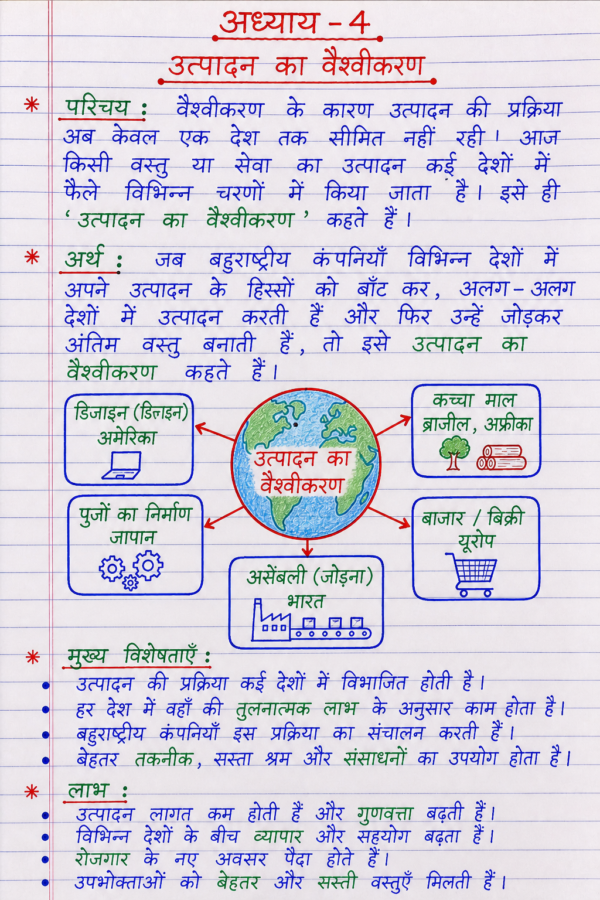 अध्याय - 4
उत्पादन का वैश्वीकरण
* परिचय : वैश्वीकरण के कारण उत्पादन की प्रक्रिया
अब केवल एक देश तक सीमित नहीं रही। आज
किसी वस्तु या सेवा का उत्पादन कई देशों में
फैले विभिन्न चरणों में किया जाता है। इसे ही
‘उत्पादन का वैश्वीकरण’ कहते हैं।
* अर्थ : जब बहुराष्ट्रीय कंपनियाँ विभिन्न देशों में
अपने उत्पादन के हिस्सों को बाँट कर, अलग-अलग
देशों में उत्पादन करती हैं और फिर उन्हें जोड़कर
अंतिम वस्तु बनाती हैं, तो इसे उत्पादन का
वैश्वीकरण कहते हैं।
डिजाइन (डिजाइन)
अमेरिका
कच्चा माल
ब्राजील, अफ्रीका
उत्पादन का
वैश्वीकरण
पुर्जो का निर्माण
जापान
बाजार / बिक्री
यूरोप
असेंबली (जोड़ना)
भारत
* मुख्य विशेषताएँ :
• उत्पादन की प्रक्रिया कई देशों में विभाजित होती है।
• हर देश में वहाँ की तुलनात्मक लाभ के अनुसार काम होता है।
• बहुराष्ट्रीय कंपनियाँ इस प्रक्रिया का संचालन करती हैं।
• बेहतर तकनीक, सस्ता श्रम और संसाधनों का उपयोग होता है।
* लाभ :
• उत्पादन लागत कम होती हैं और गुणवत्ता बढ़ती हैं।
• विभिन्न देशों के बीच व्यापार और सहयोग बढ़ता हैं।
• रोजगार के नए अवसर पैदा होते हैं।
• उपभोक्ताओं को बेहतर और सस्ती वस्तुएँ मिलती हैं।